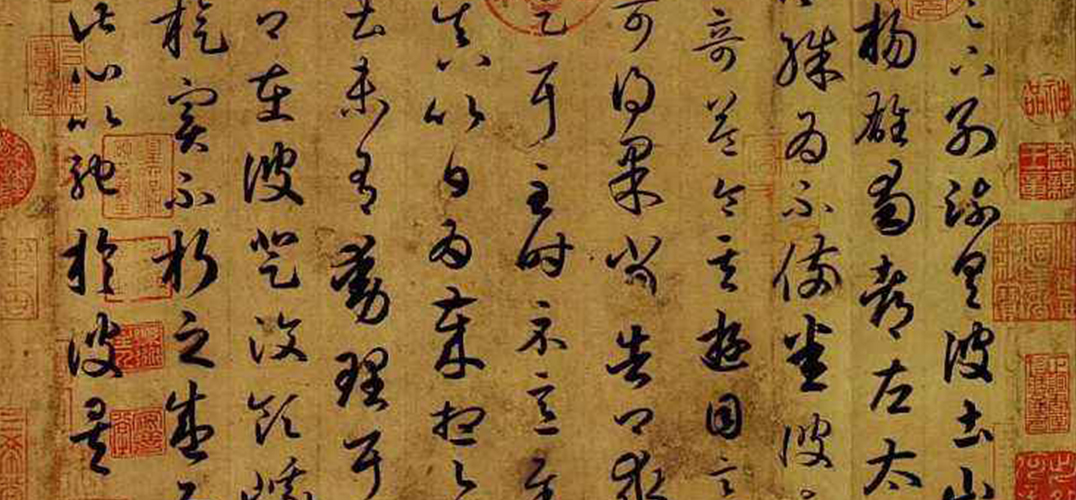 足下別疏具彼土山
楊雄蜀都左太
殊為不備悉彼
奇益令其遊目意
可得果當告卿求
足耳至時示意遲
真以日為歲想足
土未有動理耳
卿在彼登汶領峨
旋實不朽之盛
此心以馳於彼矣